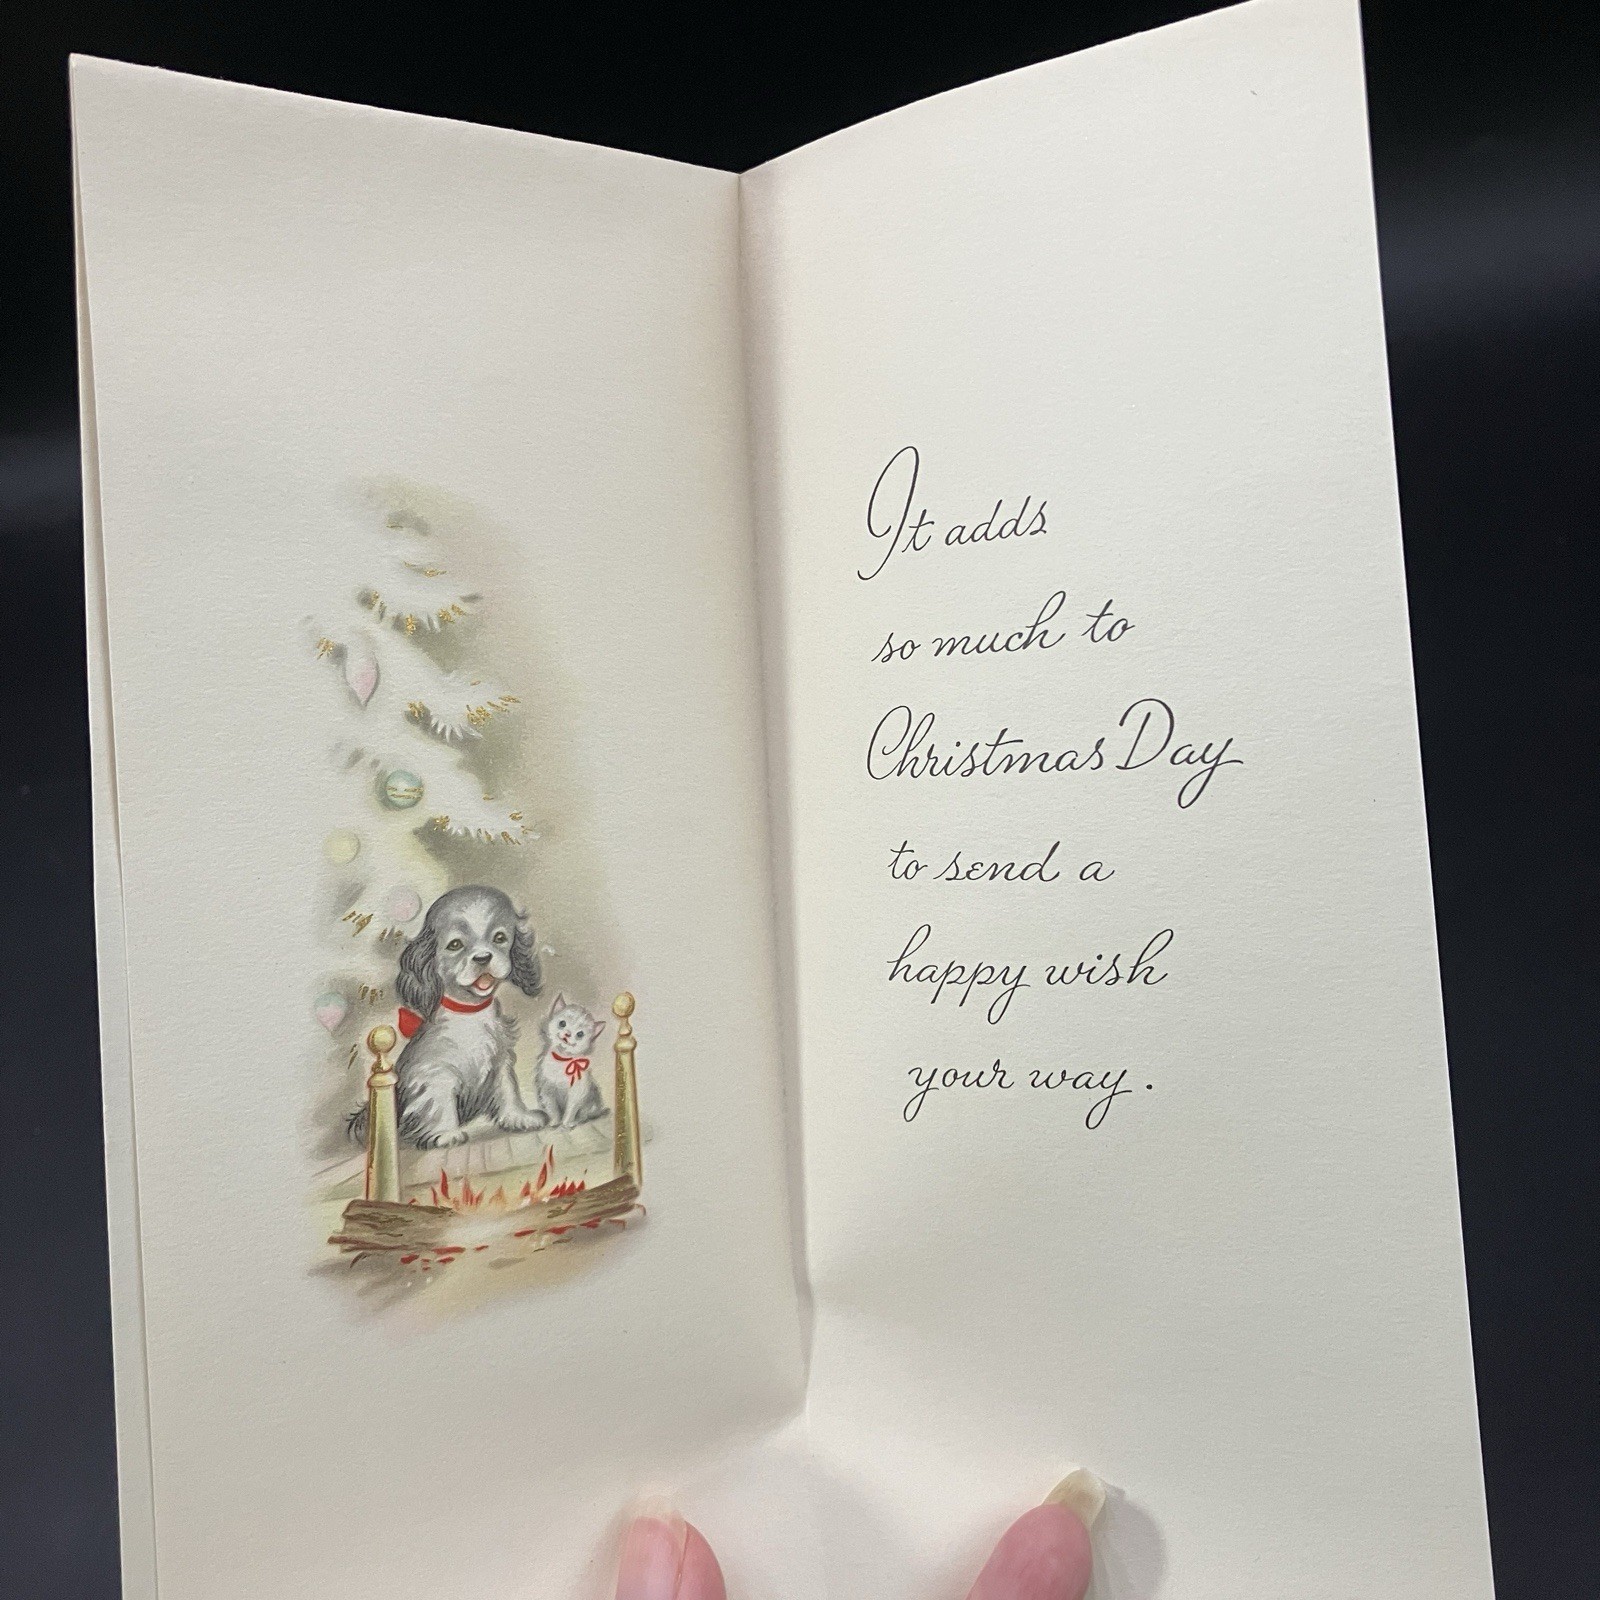 It adds
so much to
Christmas Day
to send a
happy wish
your way.